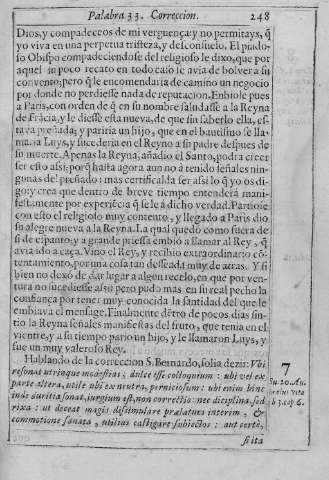 Palabra 33. Correccion. 248
Dios, y compadeceos de mi verguença: y no permitays, q̃
yo viva en una perpetua tristeza, y desconsuelo. El piado-
so Obispo compadeciendose del religioso le dixo, que por
aquel poco recato en todo caso le avia de bolver a su
convento; pero q̃ le encomendaria de camino un negocio
por donde no perdiesse nada de reputacion. Enbiole pues
a Paris, con orden de q̃ en su nombre saludasse a la Reyna
de Frãcia, y le diesse esta nueva, de que sin saberlo ella, es-
tava preñada; y pariria un hijo, que en el bautismo se lla-
maria Luys, y sucederia en el Reyno a su padre despues de
su muerte. Apenas la Reyna, añadio el Santo, podra creer
ser esto assi; porq̃ hasta agora aun no à tenido señales nin-
gunas del preñado: mas certificalda ser assi lo q̃ yo os di-
go; y crea que dentro de breve tiempo entenderá mani-
festamente por experiẽcia q̃ se le à dicho verdad. Partiose
con esto el religioso muy contento, y llegado a Paris dio
su alegre nueva a la Reyna. La qual quedó como fuera de
si de espanto; y a grande priessa embiò a llamar al Rey, q̃
avia ido a caça. Vino el Rey, y recibio extraordinario cõ-
tentamiento, por una cosa tan desseada muy de atras. Y si
bien no dexó de dar lugar a algun recelo, en que por ven-
tura no sucediesse assi: pero pudo mas en su real pecho la
confiança por tener muy conocida la santidad del que le
embiava el mensage. Finalmente dẽtro de pocos dias sin-
tio la Reyna señales manifiestas del fruto, que tenia en el
vientre, y a su tiempo pario un hijo, y le llamaron Luys, y
fue un muy valeroso Rey.
Hablando de la correccion S. Bernardo, solia dezir: Ubi
resonat utrinque modestias, dulce esse colloquium: ubi vel ex
parte altera, utile ubi ex neutra, perniciosum: ubi enim hinc
inde duritia sonat, iurgium est, non correctio: nec diciplina, sed
rixa: ut deceat magis dissimulare prælatum interim, &
commotione sanata, utilius castigare subiectos: aut certè,
si ita
7
Su. 20. Au.
b 3. cap 6.